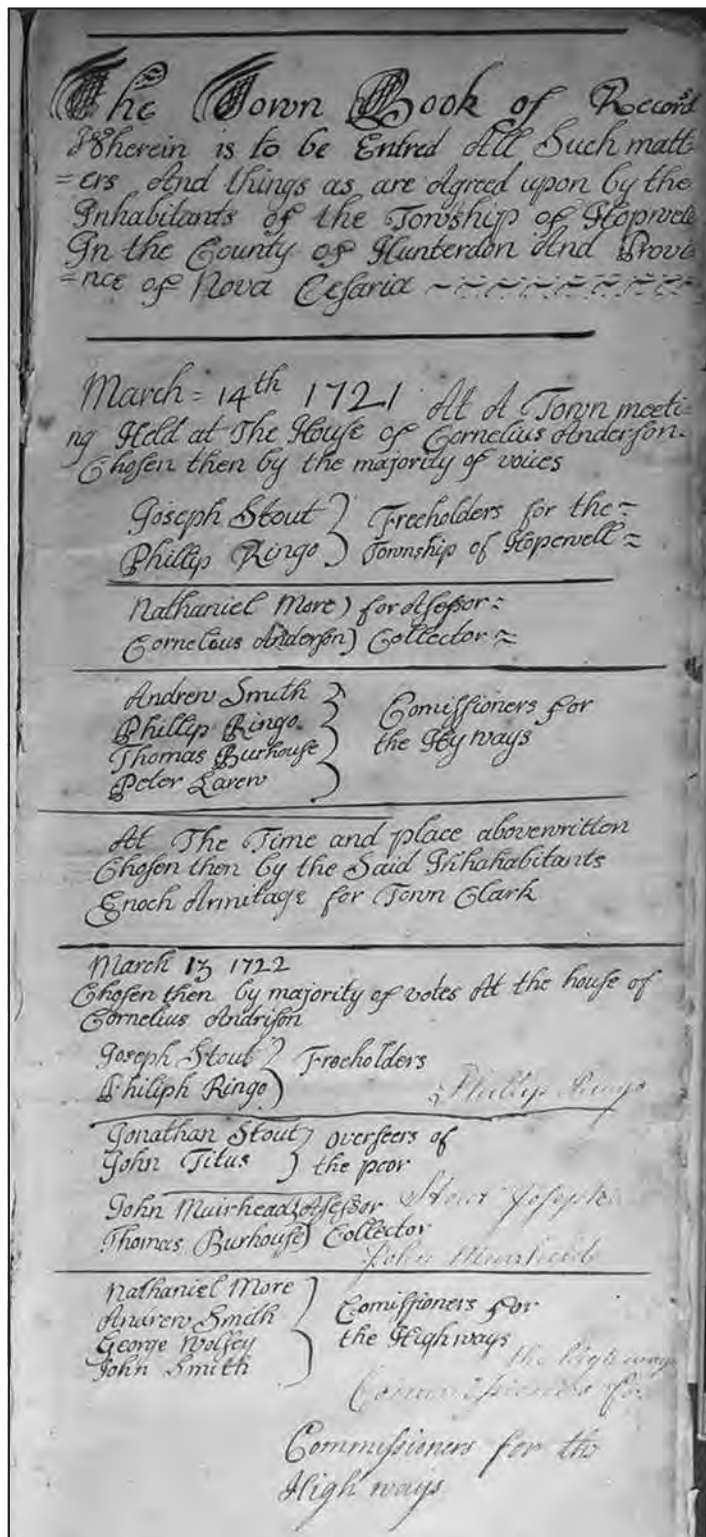 The Town Book of Records
Wherein is to be Entred All Such matt-
=ers And things as are Agreed upon by the
Inhabitants of the Township of Hopwell
In the County of Hunterdon And Provi-
=nce of Nova Cesaria ~ ~ ~ ~ ~ ~ ~ ~ ~
March = 14th 1721 At A Town meeti-
ng Held at The House of Cornelius Anderson.
Chosen then by the majority of voices
Joseph Stout ) Freeholders for the =
Phillip Ringo ) Township of Hopewell =
Nathaniel More ) for Assessor =
Cornelious Anderson ) Collector =
Andrew Smith
Phillip Ringo
Thomas Burhouse
Peter Larew
Comissioners for
the Hyways
At The Time and place abovewritten
Chosen then by the Said Inhahabitants
Enoch Armitage for Town Clark
March 13 1722
Chosen then by majority of votes At the house of
Cornelius Andrison
Joseph Stout ) Freeholders
Philiph Ringo )
Phillip Ringo
Jonathan Stout ) overseers of
John Titus ) the poor
John Muirhead ) Assessor
Stout Joseph
Thomas Burhouse ) Collector
John Muirheid
Nathaniel More
Andrew Smith
George Wolsey
John Smith
Comissioners for
the Highways
the high ways
Commissioners for
Commissioners for the
High ways